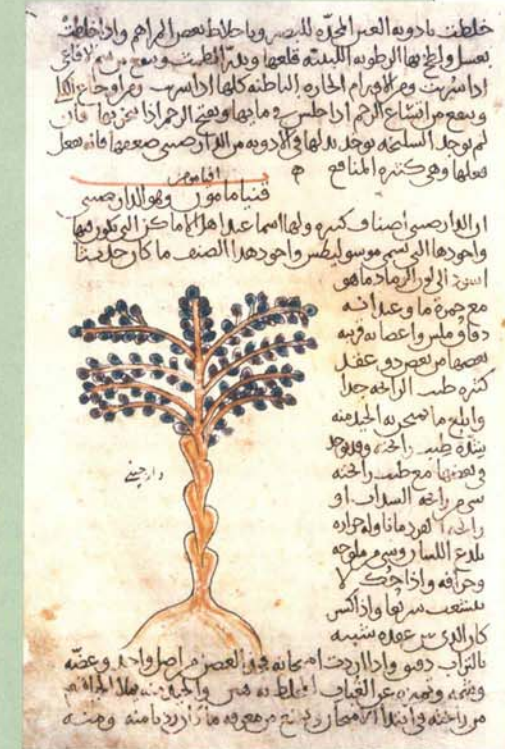 خلطت بادويه العين المحدّه للبصر وباخلاط بعض المراهم واذا خلطت
بعسل ولطخ بها الرطوبه اللبنيّه قلعها ويدرّ الطمث وينفع من سم الافاعى
اذا شربت ومن الاورام الحاره الباطنه كلها اذا شربت ومن اوجاع الكلى
وينفع من اتساع الرحم اذا جلس فى مايها ويفتح الرحم اذا تدخّن بها فان
لم توجد السليخه يوجد بدلها فى الادويه من الدارصينى ضعفها فانه يفعل
فعلها وهى كثيره المنافع
قنيامامون وهو الدارصينى
ان الدارصينى اصناف كثيره ولها اسما عند اهل الاماكن التى تكون فيها
واجودها التى تسمى موسوليطس واجود هذا الصنف ما كان حديثا
اسود الى لون الرماد ما هو
مع حمرة ما وعيدانه
دقاق ملس واغصانه قريبه
بعضها من بعض ذو عقد
كثره طيب الرائحه جدا
وابلغ ما يمتحن به الجيد منه
بشدّة طيب رائحته وقد يوجد
فى بعضها مع طيب رائحته
شى من رائحه السداب او
رائحه القردمانا وله حراره
يلدع اللسان وشى من ملوحه
وحرافه واذا حك لا
يتشعب سريعا واذا كسر
كان الذى بين عقده شبيه
بالتراب دقيق واذا اردت امتحانه فخذ الغصن من اصل واحد
دارصينى